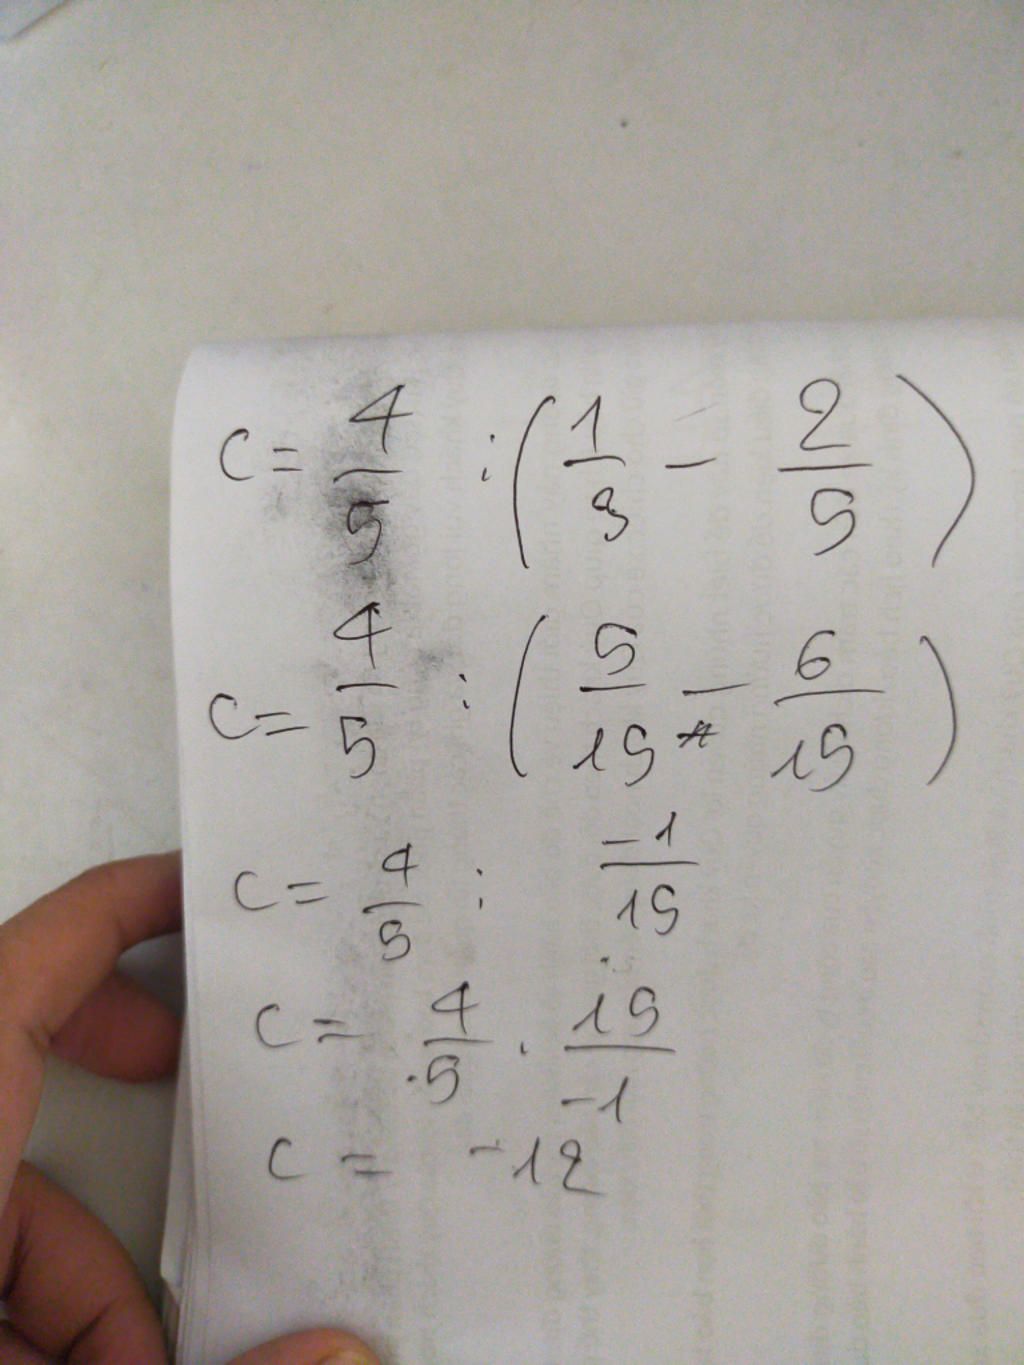 C = 4/5 : (1/3 - 2/5)
C = 4/5 : (5/15 - 6/15)
C = 4/5 : -1/15
C = 4/5 . 15/-1
C = -12